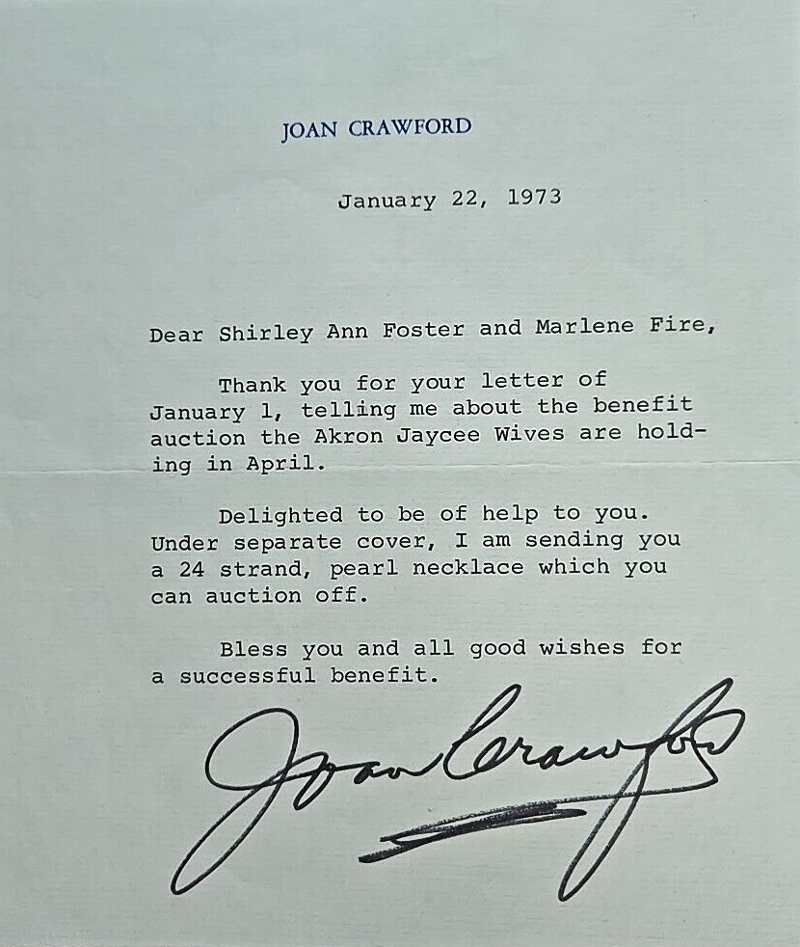 JOAN CRAWFORD
January 22, 1973
Dear Shirley Ann Foster and Marlene Fire,
Thank you for your letter of
January 1, telling me about the benefit
auction the Akron Jaycee Wives are hold-
ing in April.
Delighted to be of help to you.
Under separate cover, I am sending you
a 24 strand, pearl necklace which you
can auction off.
Bless you and all good wishes for
a successful benefit.
Joan Crawford